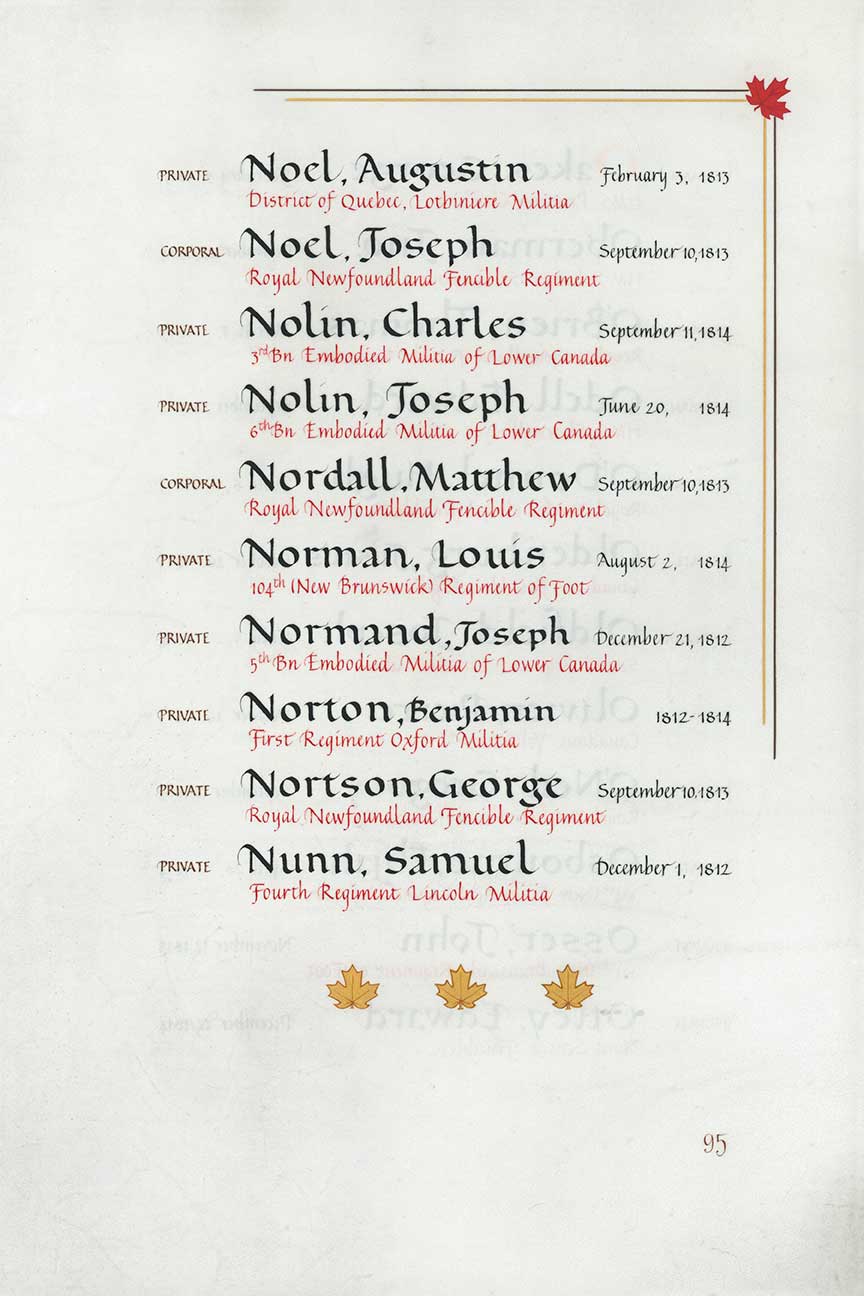 PRIVATE Noel, Augustin February 3, 1813
District of Quebec, Lotbiniere Militia
CORPORAL Noel, Joseph September 10, 1813
Royal Newfoundland Fencible Regiment
PRIVATE Nolin, Charles September 11, 1814
3rd Bn Embodied Militia of Lower Canada
PRIVATE Nolin, Joseph June 20, 1814
6th Bn Embodied Militia of Lower Canada
CORPORAL Nordall, Matthew September 10, 1813
Royal Newfoundland Fencible Regiment
PRIVATE Norman, Louis August 2, 1814
104th (New Brunswick) Regiment of Foot
PRIVATE Normand, Joseph December 21, 1812
5th Bn Embodied Militia of Lower Canada
PRIVATE Norton, Benjamin 1812-1814
First Regiment Oxford Militia
PRIVATE Nortson, George September 10, 1813
Royal Newfoundland Fencible Regiment
PRIVATE Nunn, Samuel December 1, 1812
Fourth Regiment Lincoln Militia
95